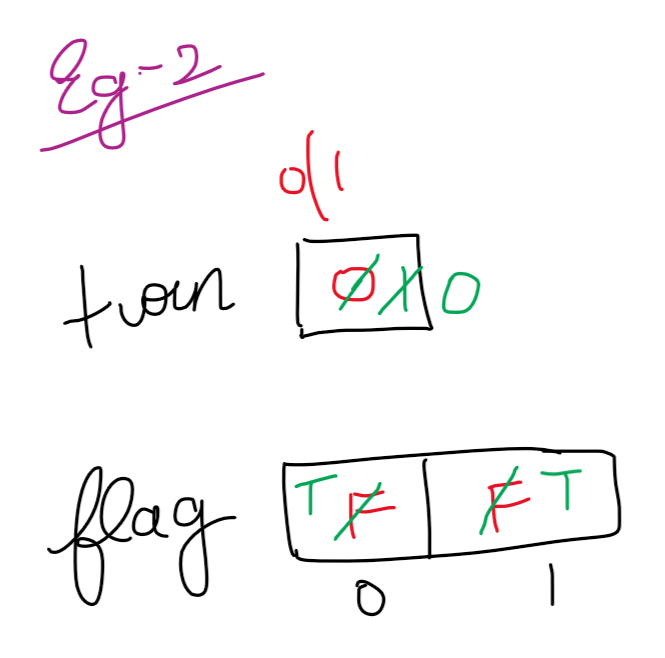 Eg-2
0/1
turn 0 1 0
flag T F F T
0 1